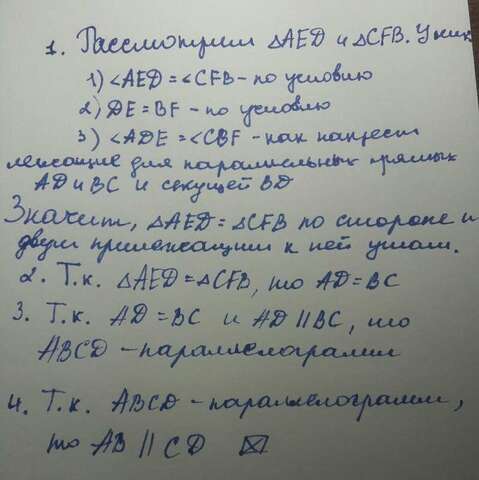 1. Рассмотрим △AED и △CFB. У них
1) ∠AED = ∠CFB - по условию
2) DE = BF - по условию
3) ∠ADE = ∠CBF - как накрест
лежащие для параллельных прямых
AD и BC и секущей BD
Значит, △AED = △CFB по стороне и
двум прилежащим к ней углам.
2. Т.к. △AED = △CFB, то AD = BC
3. Т.к. AD = BC и AD || BC, то
ABCD - параллелограмм
4. Т.к. ABCD - параллелограмм,
то AB || CD